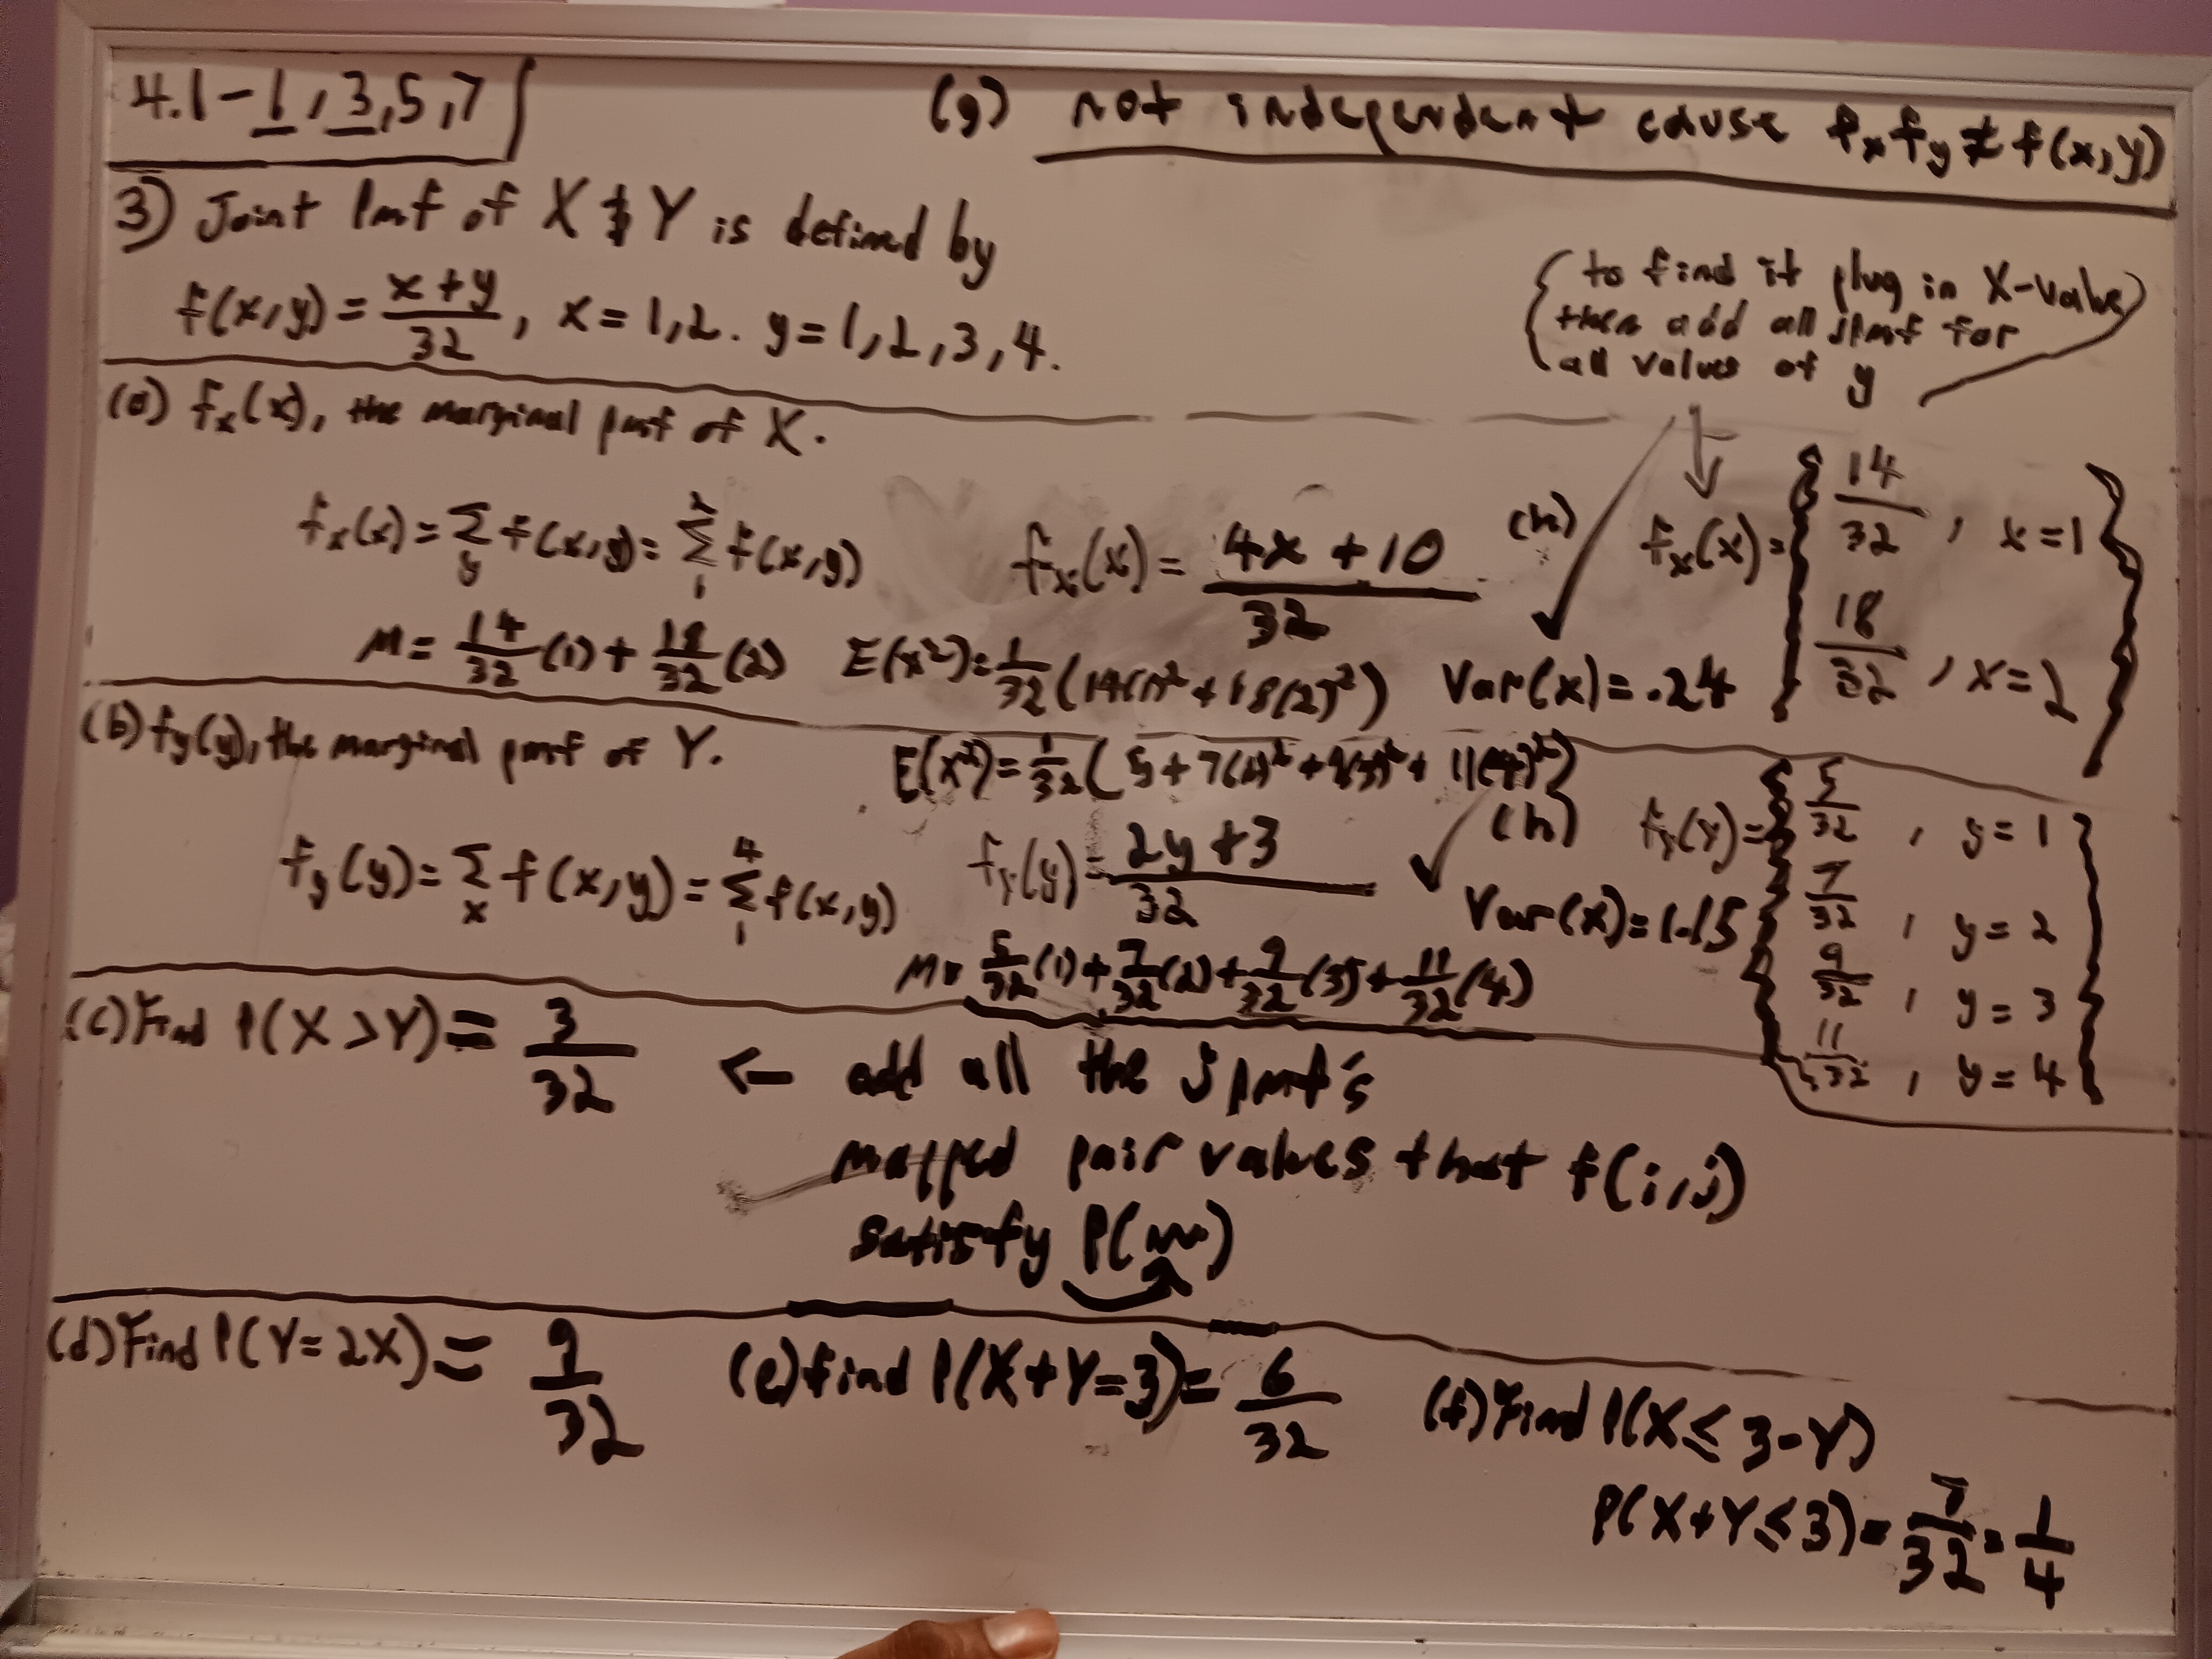 4.1-1,3,5,7
(g) not independent cause fxfy≠f(x,y)
3) Joint Pmf of X & Y is defined by
f(x,y) = x+y/32, x=1,2. y=1,2,3,4.
{to find it plug in X-value
then add all jpmf for
all values of y}
(a) fx(x), the marginal pmf of X.
fx(x) = Σy f(x,y) = Σ₁² f(x,y)
fx(x) = 4x+10/32
(h)
fx(x) = { 14/32, x=1
18/32, x=2 }
M = 14/32 (1) + 18/32 (2) E(x²) = 1/32 (14(1)² + 18(2)²) Var(x) = .24
(b) fy(y), the marginal pmf of Y.
E(x²) = 1/32 (5+7(2)²+9(3)²+11(4)²)
fy(y) = Σx f(x,y) = Σ₁⁴ f(x,y)
fy(y) = 2y+3/32
(h)
Var(x) = 1.15
fy(y) = { 5/32, y=1
7/32, y=2
9/32, y=3
11/32, y=4 }
M = 5/32 (1) + 7/32 (2) + 9/32 (3) + 11/32 (4)
(c) Find P(X>Y) = 3/32 ← add all the jpmf's
mapped pair values that f(i,j)
satisfy P(
(d) Find P(Y=2X) = 9/32 (e) find P(X+Y=3) = 6/32 (f) Find P(X≤3-Y)
P(X+Y≤3) = 7/32 = 1/4